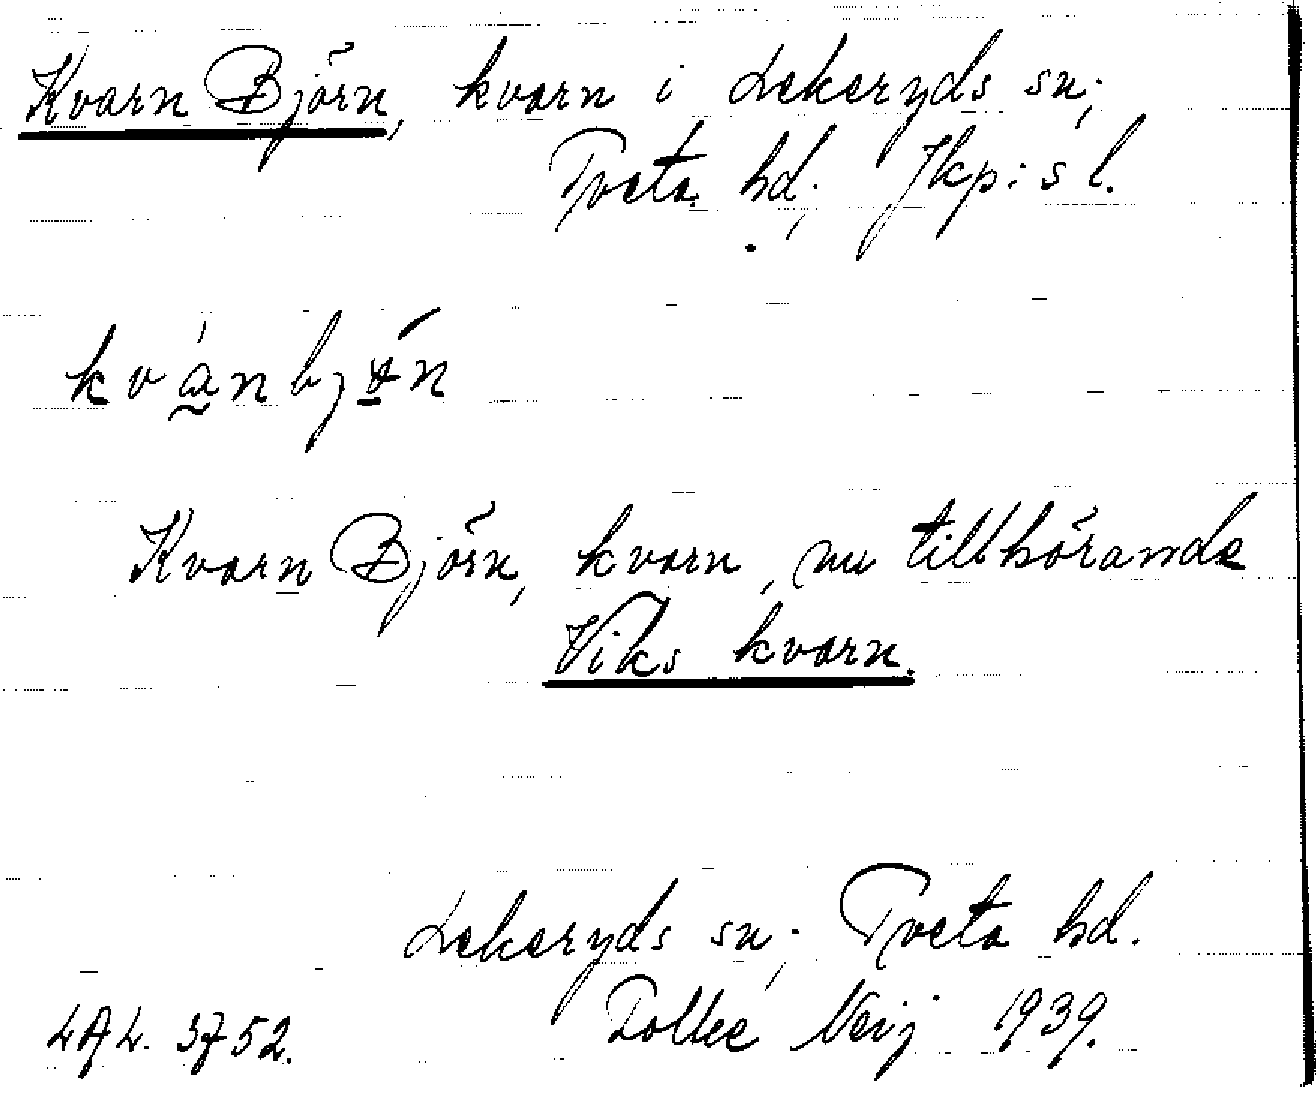 Kvarn Björn, kvarn i Lekeryds sn;
Tveta hd; Jkp:s l.
Kvarn Björn, kvarn, nu tillhörande
Viks kvarn.
Lekeryds sn; Tveta hd.
1939.
LAL. 3752.